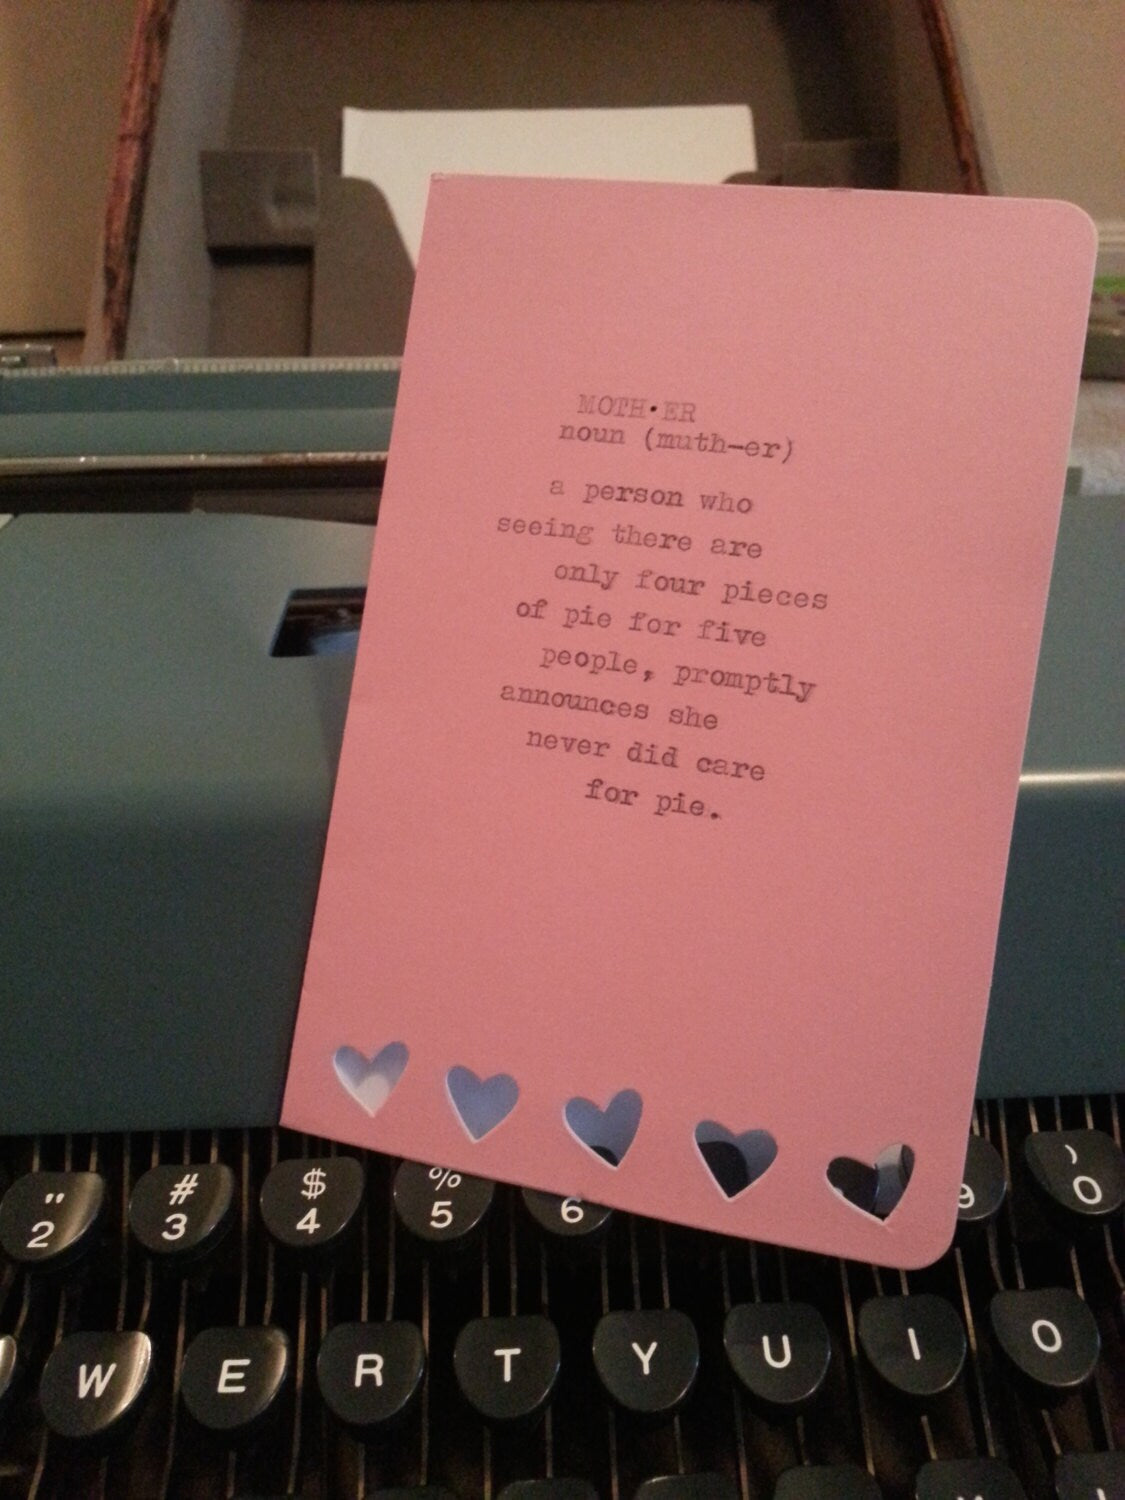 MOTH·ER
noun (muth-er)
a person who
seeing there are
only four pieces
of pie for five
people, promptly
announces she
never did care
for pie.
" # $ % )
2 3 4 5 6 9 0
W E R T Y U I O